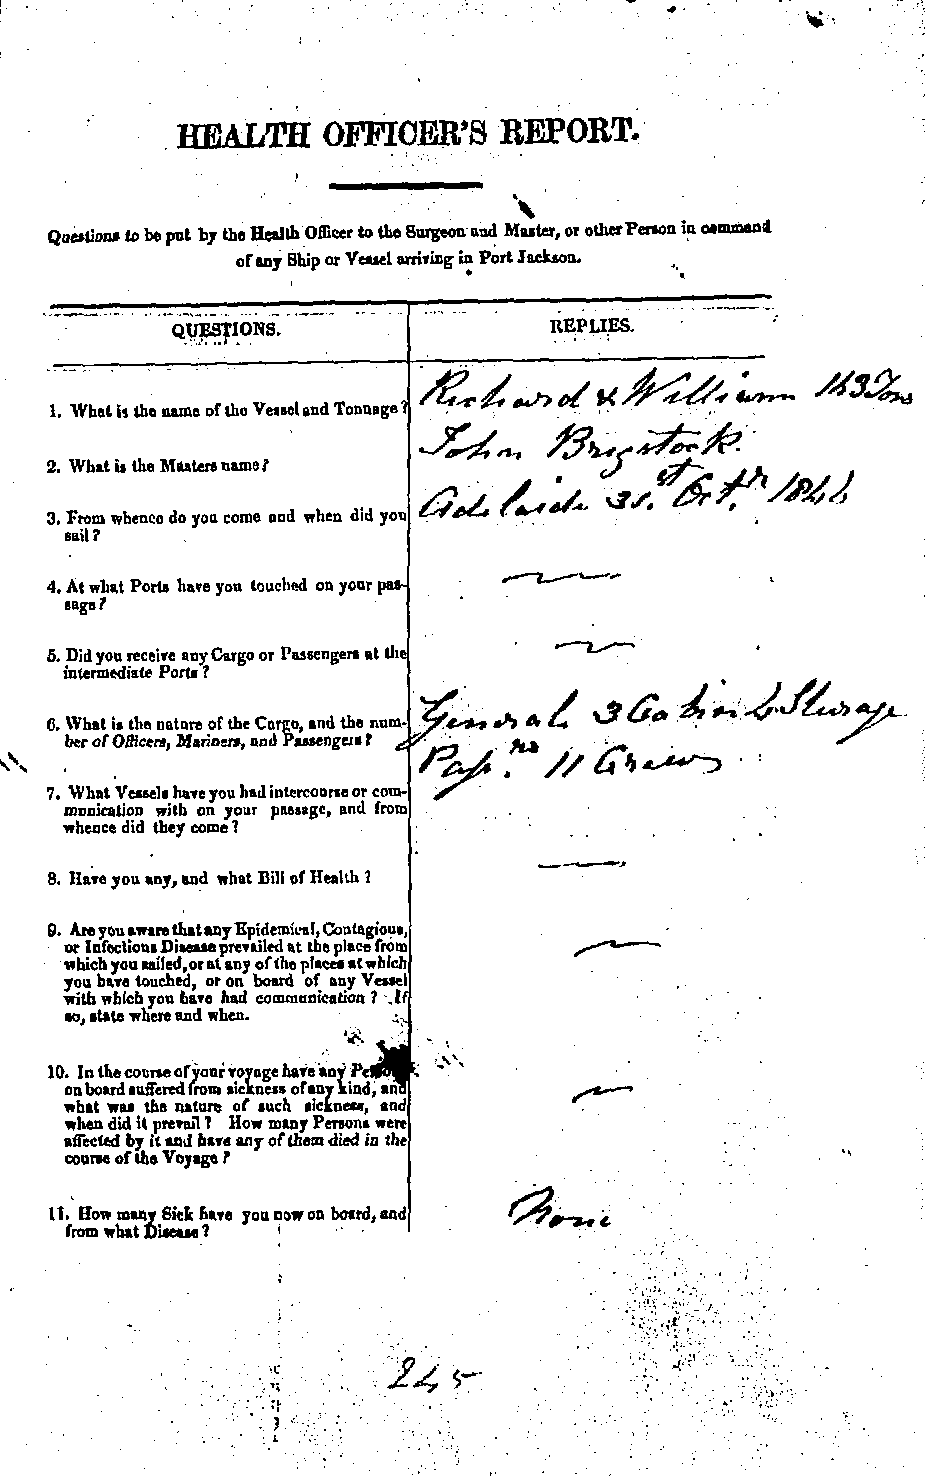 HEALTH OFFICER'S REPORT.
Questions to be put by the Health Officer to the Surgeon and Master, or other Person in command
of any Ship or Vessel arriving in Port Jackson.
QUESTIONS.
REPLIES.
1. What is the name of the Vessel and Tonnage?
Richard & William 143 Tons
2. What is the Masters name?
John Brigstock
3. From whence do you come and when did you
sail?
Adelaide 31st Octr. 1844
4. At what Ports have you touched on your pas-
sage?
5. Did you receive any Cargo or Passengers at the
intermediate Ports?
6. What is the nature of the Cargo, and the num-
ber of Officers, Mariners, and Passengers?
General 3 Cabin 4 Sturage
Passrs. 11 Crew
7. What Vessels have you had intercourse or com-
munication with on your passage, and from
whence did they come?
8. Have you any, and what Bill of Health?
9. Are you aware that any Epidemical, Contagious,
or Infectious Disease prevailed at the place from
which you sailed, or at any of the places at which
you have touched, or on board of any Vessel
with which you have had communication? If
so, state where and when.
10. In the course of your voyage have any Persons
on board suffered from sickness of any kind, and
what was the nature of such sickness, and
when did it prevail? How many Persons were
affected by it and have any of them died in the
course of the Voyage?
11. How many Sick have you now on board, and
from what Disease?
None
245